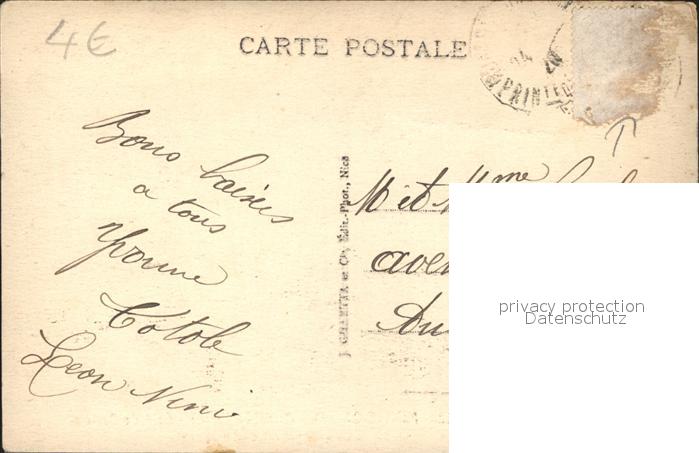 4€
CARTE POSTALE
PRINTE
Bons baisers
a tous
Yvonne
Totole
Leon Nini
J. GILLETTA et Cie, Édit.-Phot., Nice
M et Mme
aven
Au
privacy protection
Datenschutz